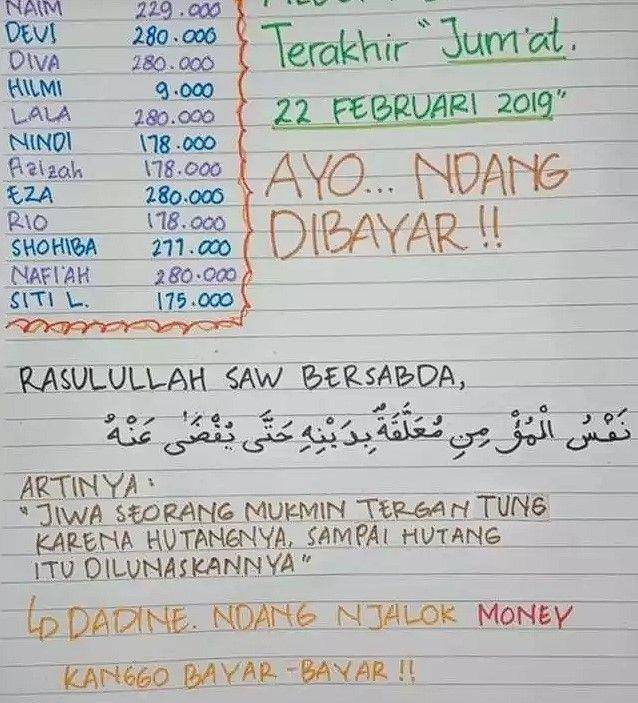 NAIM 229.000
DEVI 280.000
DIVA 280.000
HILMI 9.000
LALA 280.000
NINDI 178.000
Azizah 178.000
EZA 280.000
RIO 178.000
SHOHIBA 277.000
NAFI'AH 280.000
SITI L. 175.000
Terakhir "Jum'at.
22 FEBRUARI 2019"
AYO... NDANG
DIBAYAR!!
RASULULLAH SAW BERSABDA,
نَفْسُ الْمُؤْ مِنِ مُعَلَّقَةٌ بِدَيْنِهِ حَتَّى يُقْضَى عَنْهُ
ARTINYA :
"JIWA SEORANG MUKMIN TERGAN TUNG
KARENA HUTANGNYA, SAMPAI HUTANG
ITU DILUNASKANNYA"
↳ DADINE. NDANG NJALOK MONEY
KANGGO BAYAR-BAYAR!!